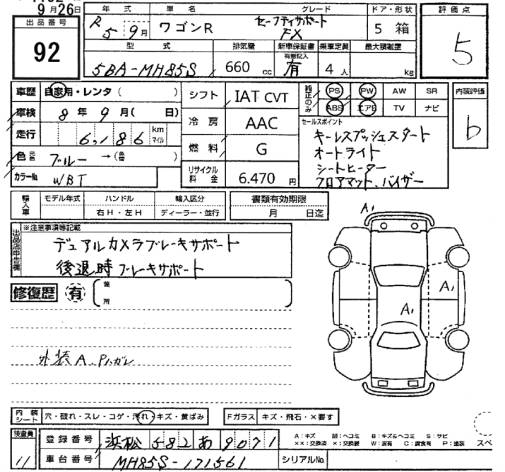 9月26日
出品番号
92
年式 車名 グレード ドア・形状 評価点
R5年9月 ワゴンR セーフティサポート FX 5 箱 5
型式 排気量 新車保証書 乗車定員 最大積載量
有無記入
5BA-MH85S 660cc 有 4人 kg
車歴 自家用・レンタ( )
車検 8年9月( 日)
走行 6,186 km マイル
色 ブルー →( )
カラーNo. WBT
シフト IAT CVT
冷房 AAC
燃料 G
リサイクル料金 6.470円
純正のみ PS PW AW SR
ABS エアB TV ナビ
内装評価
b
セールスポイント
キーレスプッシュスタート
オートライト
シートヒーター
フロアマット、バイザー
輸入車 モデル年式 ハンドル 輸入区分 書類有効期限
年 右H・左H ディーラー・並行 月 日迄
※注意事項等記載
デュアルカメラブレーキサポート
後退時ブレーキサポート
修復歴 有 箇所
A1
A1
A1
外装A、P小ガレ
内装シート 穴・破れ・スレ・コゲ・汚れ・キズ・黄ばみ Fガラス キズ・飛石・×要す
検査員 11
登録番号 浜松 582 あ 9071
車台番号 MH85S-171561 シリアルNo.